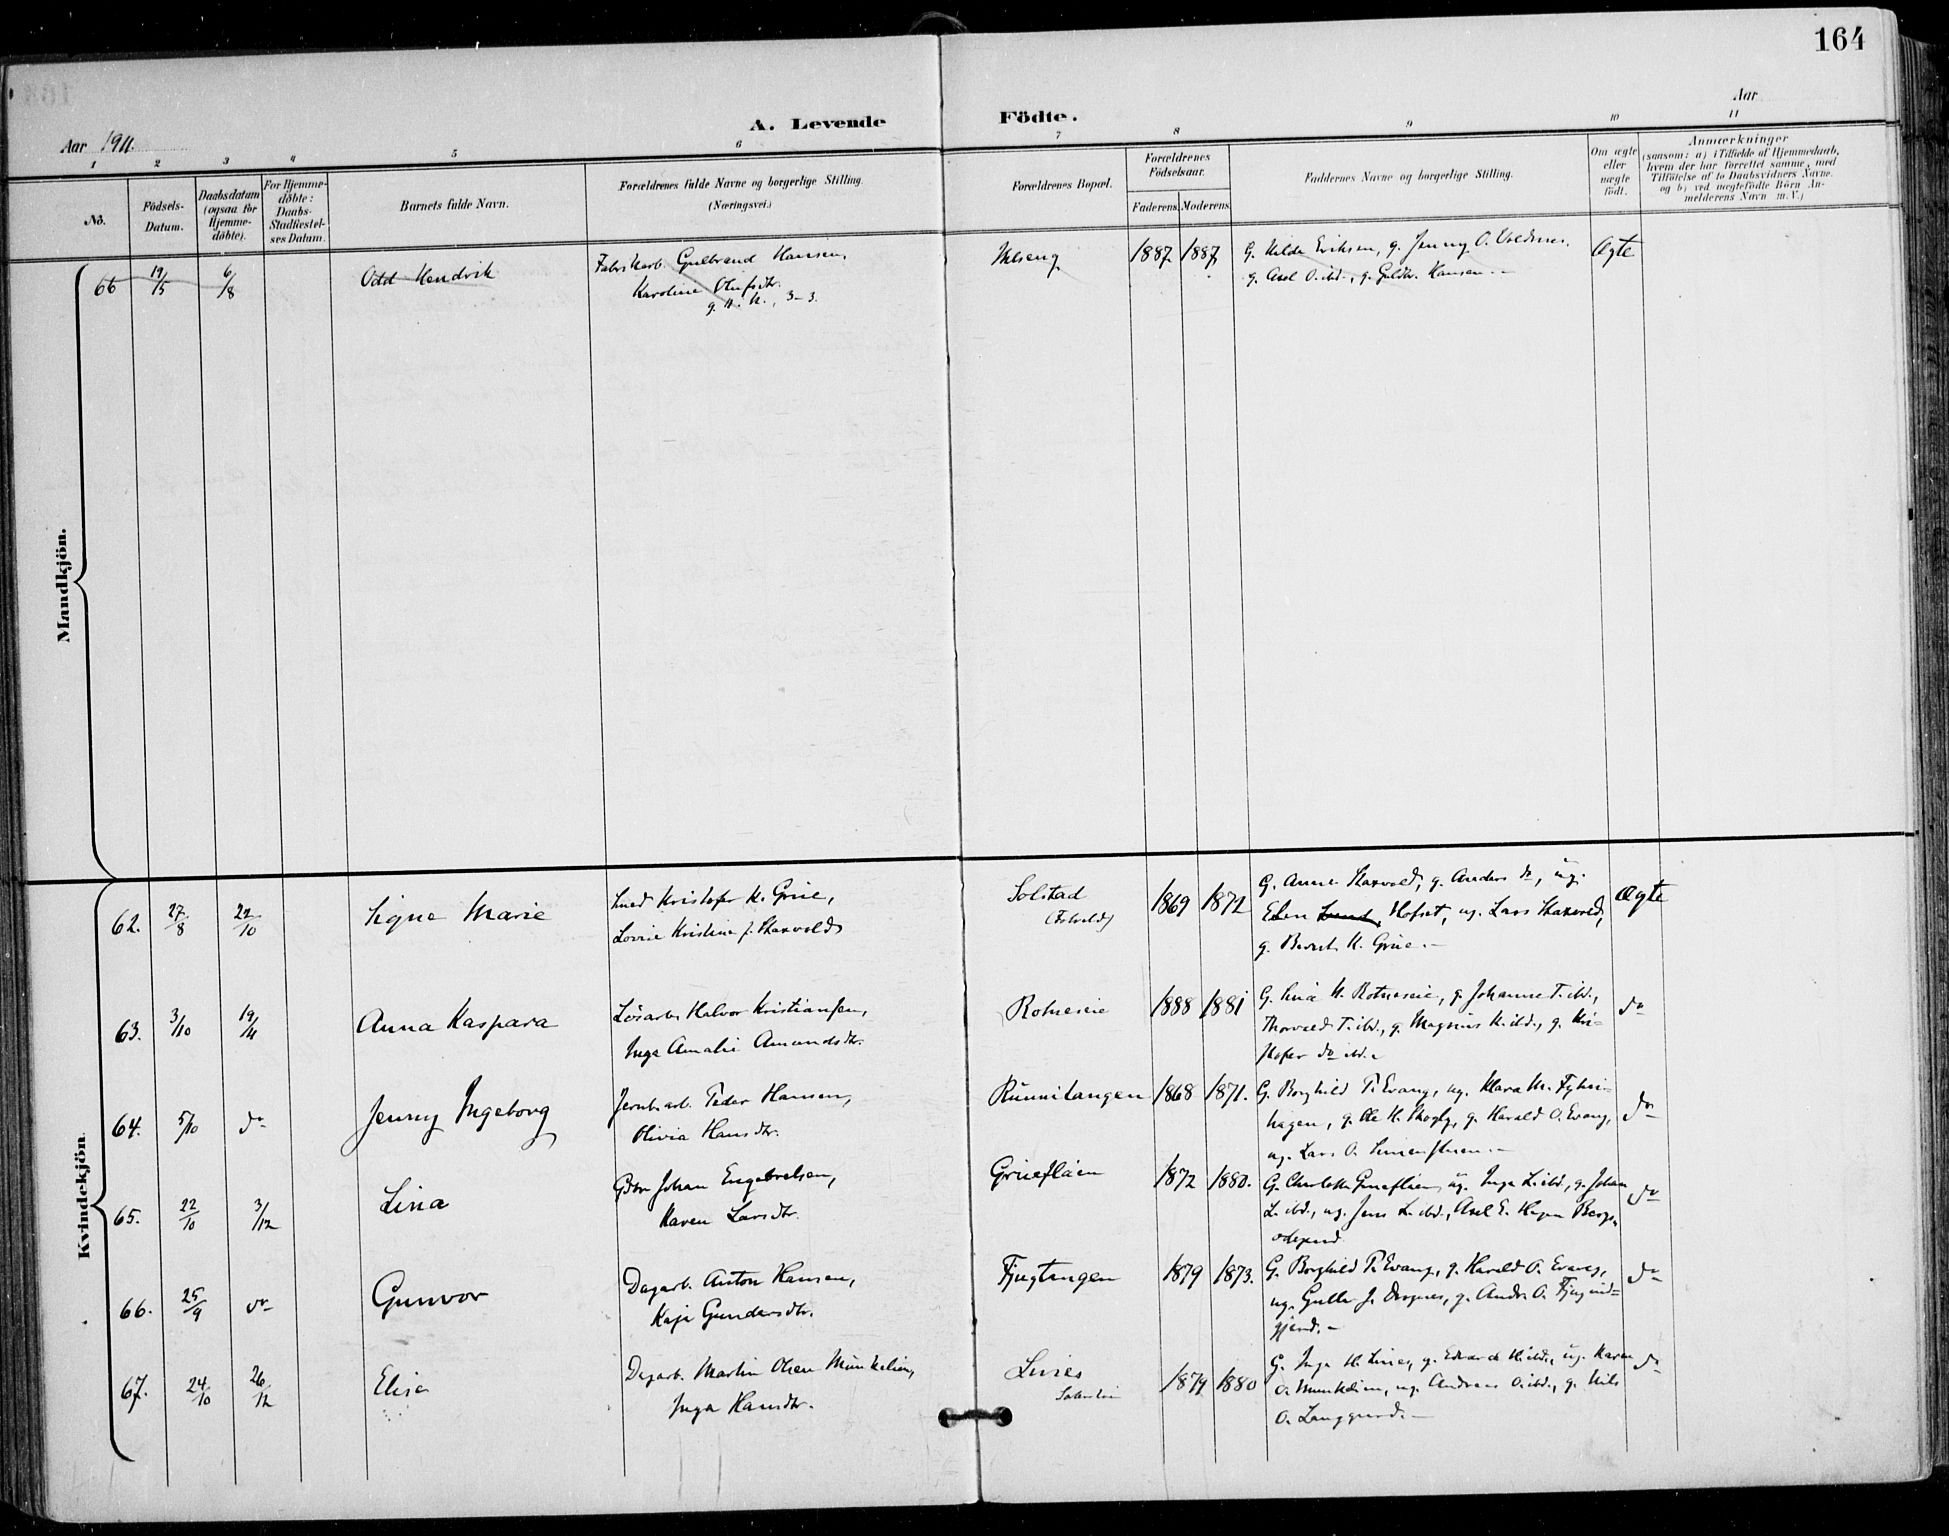 164
Aar 1911.
A. Levende Födte.
Aar
1 2 3 4 5 6 7 8 9 10 11
No.
Födsels-
Datum.
Daabsdatum
(ogsaa for
Hjemme-
döbte).
For Hjemme-
döbte:
Daabs-
Stadfæstel-
ses Datum.
Barnets fulde Navn.
Forældrenes fulde Navne og borgerlige Stilling.
(Næringsvei.)
Forældrenes Bopæl.
Forældrenes
Födselsaar.
Faderens Moderens
Faddernes Navne og borgerlige Stilling.
Om ægte
eller
uægte
födt.
Anmærkninger
(saasom: a) i Tilfælde af Hjemmedaab,
hvem der har forrettet samme, med
Tilföielse af to Daabsvidners Navne.
og b) ved uægtefödte Börn An-
melderens Navn m.V.)
Mandkjön.
66 19/5 6/8 Odd Hendrik
Fabrikarb. Gulbrand Hansen,
Karoline Olufsdtr.
1887 1887
G. Hilda Eriksen, g. Jenny O.
g. Axel O. ibd., g. Guldbr. Hansen.-
Ægte
Kvindekjön.
62. 27/8 22/10 Signe Marie
Kristofer K. Grue,
Lovise Kristine f. Skaxvold
Solstad
1869 1872
G. Anne Skaxvold, g. Anders do, ug.
Hofset, ug. Lars Skaxvold,
g. Bernt K. Grue.-
Ægte
63. 3/10 19/11 Anna Kaspara
Lösarb. Halvor Kristiansen,
Inga Amalie Amundsdtr.
1888 1881
Johanne T. ibd.,
Thorvald T. ibd., g. Magnus K. ibd., g. Kri-
stofer do ibd.
do
64. 5/10 do Jenny Ingeborg
Jernbarb. Peder Hansen,
Olivia Hansdtr.
Runnitangen
1868 1871.
G. Borghild P. Evang, ug. Klara M.
hagen, g. Ole H. Skogly, g. Harald O. Evang,
ug. Lars O.
do
65. 22/10 3/12 Lina
Gbr. Johan Engebretsen,
Karen Larsdtr.
Grueflaen
1872 1880.
G. Charlotte Grueflaen, ug. Inga L. ibd., g. Johan
L. ibd., ug. Jens L. ibd., Axel E. Hagen
do
66. 25/9 do Gunvor
Dagarb. Anton Hansen,
Kaja Gundersdtr.
Fjugtangen
1879 1873.
G. Borghild P. Evang, g. Harald O. Evang,
ug. Andr. O.
do
67. 24/10 26/12 Elise
Dagarb. Martin Olsen Munkelien,
Inga Hansdtr.
Lines
1879 1880
G. Inga H. Lines, g. Edvard H. ibd., ug. Karen
O. Munkelien, ug. Andreas O. ibd., g. Nils
O.
do